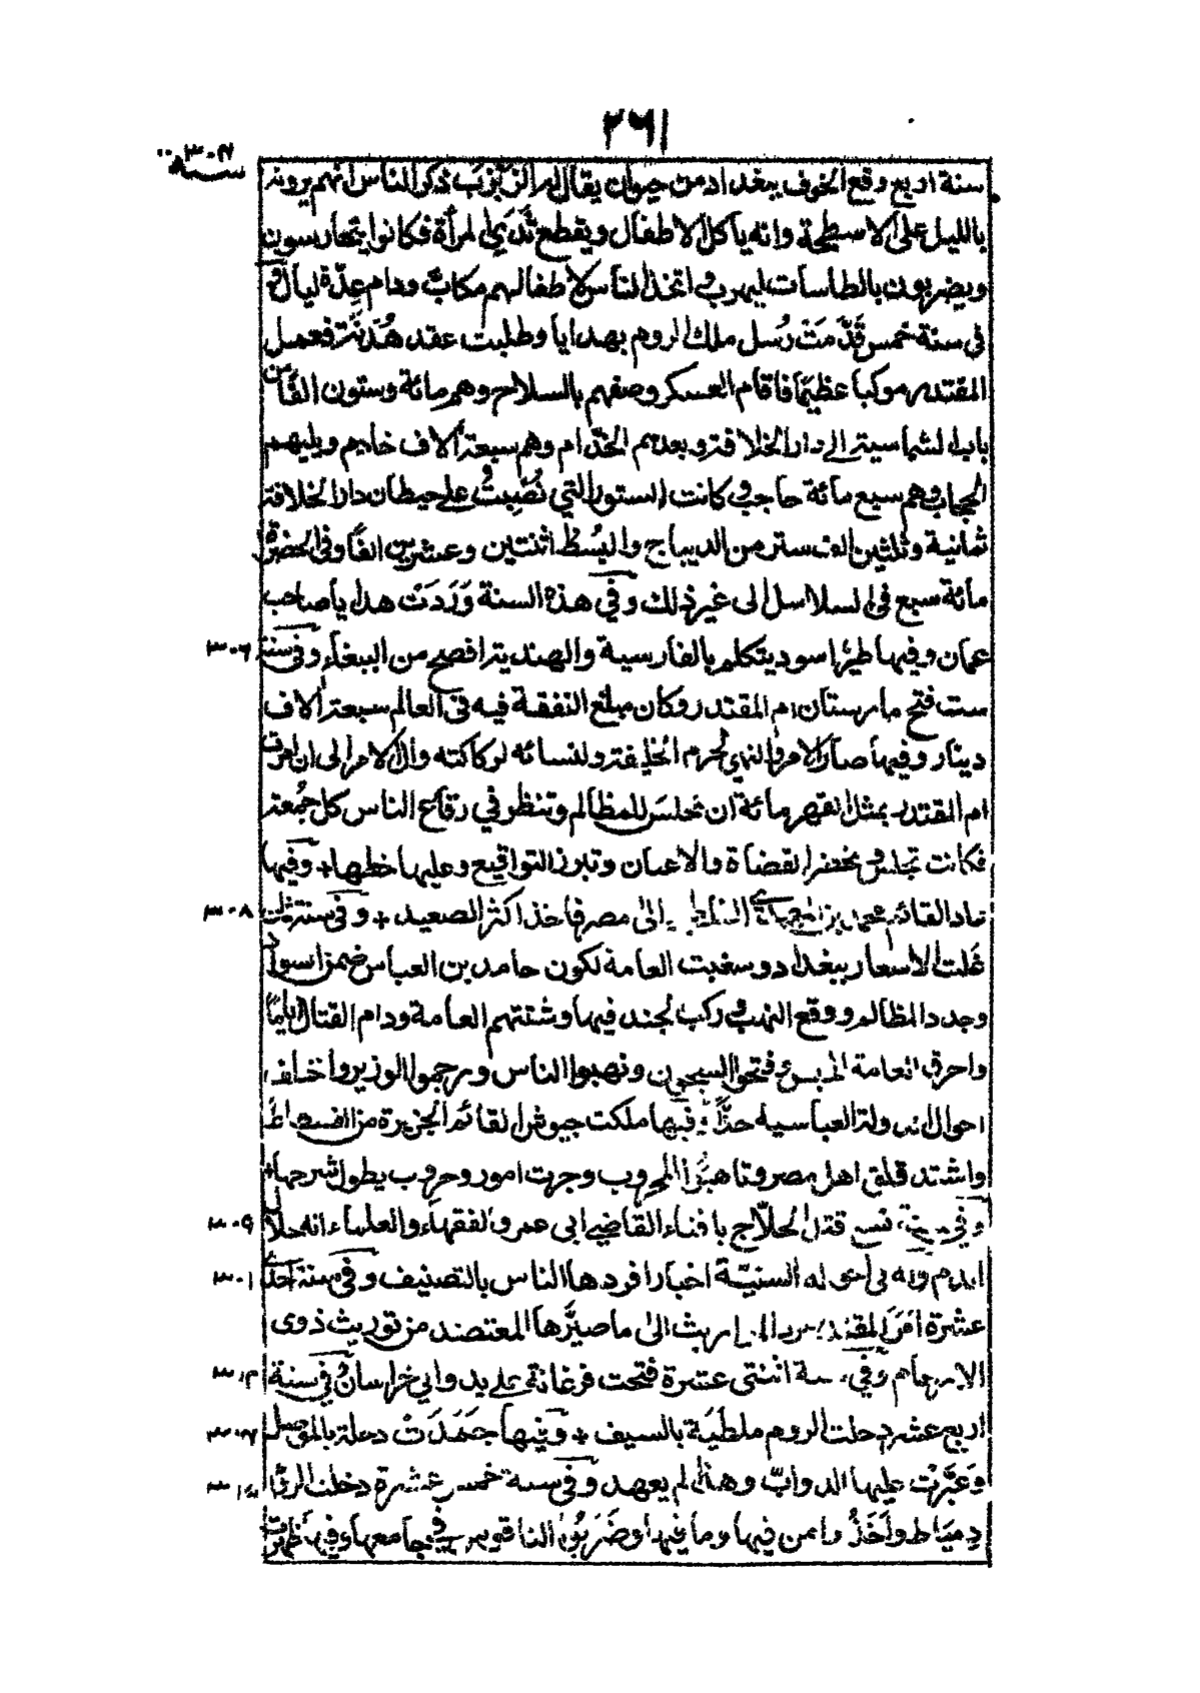 ٢٦١
سنة ٣٠٤
سنة اربع وقع الخوف ببغداد من حيوان يقال له الزبزب ذكر الناس انهم يرونه
بالليل على الاسطحة وانه يأكل الاطفال ويقطع ثدي المرأة فكانوا يتحارسون
ويضربون بالطاسات ليهرب واتخذ الناس لاطفالهم مكاب ودام عدة ليال و
في سنة خمس قدمت رسل ملك الروم بهدايا وطلبت عقد هدنة فعمل
المقتدر موكبا عظيما فاقام العسكر وصفهم بالسلاح وهم مائة وستون الفا من
باب الشماسية الى دار الخلافة وبعدهم الخدام وهم سبعة آلاف خادم ويليهم
الحجاب وهم سبع مائة حاجب وكانت الستور التي نصبت على حيطان دار الخلافة
ثمانية وثلثين الف ستر من الديباج والبسط اثنتين وعشرين الفا وفي الحضرة
مائة سبع في السلاسل الى غير ذلك وفي هذه السنة وردت هدايا صاحب
عمان وفيها طير اسود يتكلم بالفارسية والهندية افصح من الببغاء وفي سنة
٣٠٦
ست فتح مارستان ام المقتدر وكان مبلغ النفقة فيه في العالم سبعة آلاف
دينار وفيها صار الامر والنهي لحرم الخليفة ولنسائه لركاكته وآل الامر الى ان امرت
ام المقتدر بمثل القهرمانة ان تجلس للمظالم وتنظر في رقاع الناس كل جمعة
فكانت تجلس وتحضر القضاة والاعيان وتبرز التواقيع وعليها خطها + وفيها
عاد القائم محمد بن المهدي الفاطمي الى مصر فاخذ اكثر الصعيد + وفي سنة ثمان
٣٠٨
غلت الاسعار ببغداد وسغبت العامة لكون حامد بن العباس ضمن السواد
وجدد المظالم ووقع النهب وركب الجند فيها وشتتهم العامة ودام القتال اياما
واحرق العامة الحبس وفتحوا السجون ونهبوا الناس ورجموا الوزير واختلف
احوال الدولة العباسية جدا وفيها ملكت جيوش القائم الجزيرة من الفسطاط
واشتد قلق اهل مصر وتاهبوا للحروب وجرت امور وحروب يطول شرحها +
وفي سنة تسع قتل الحلاج بافتاء القاضي ابي عمر والفقهاء والعلماء انه حلال
٣٠٩
الدم وله في احواله السنية اخبار افردها الناس بالتصنيف وفي سنة احدى
٣٠١
عشرة امر المقتدر برد المواريث الى ما صيرها المعتضد من توريث ذوى
الارحام وفي سنة اثنتى عشرة فتحت فرغانة على يد والي خراسان وفي سنة
٣٠٢
اربع عشرة دخلت الروم ملطية بالسيف + وفيها جمدت دجلة بالموصل
وعبرت عليها الدواب وهذا لم يعهد وفي سنة خمس عشرة دخلت الروم
دمياط واخذوا من فيها وما فيها وضربوا الناقوس في جامعها وفيها ظهرت